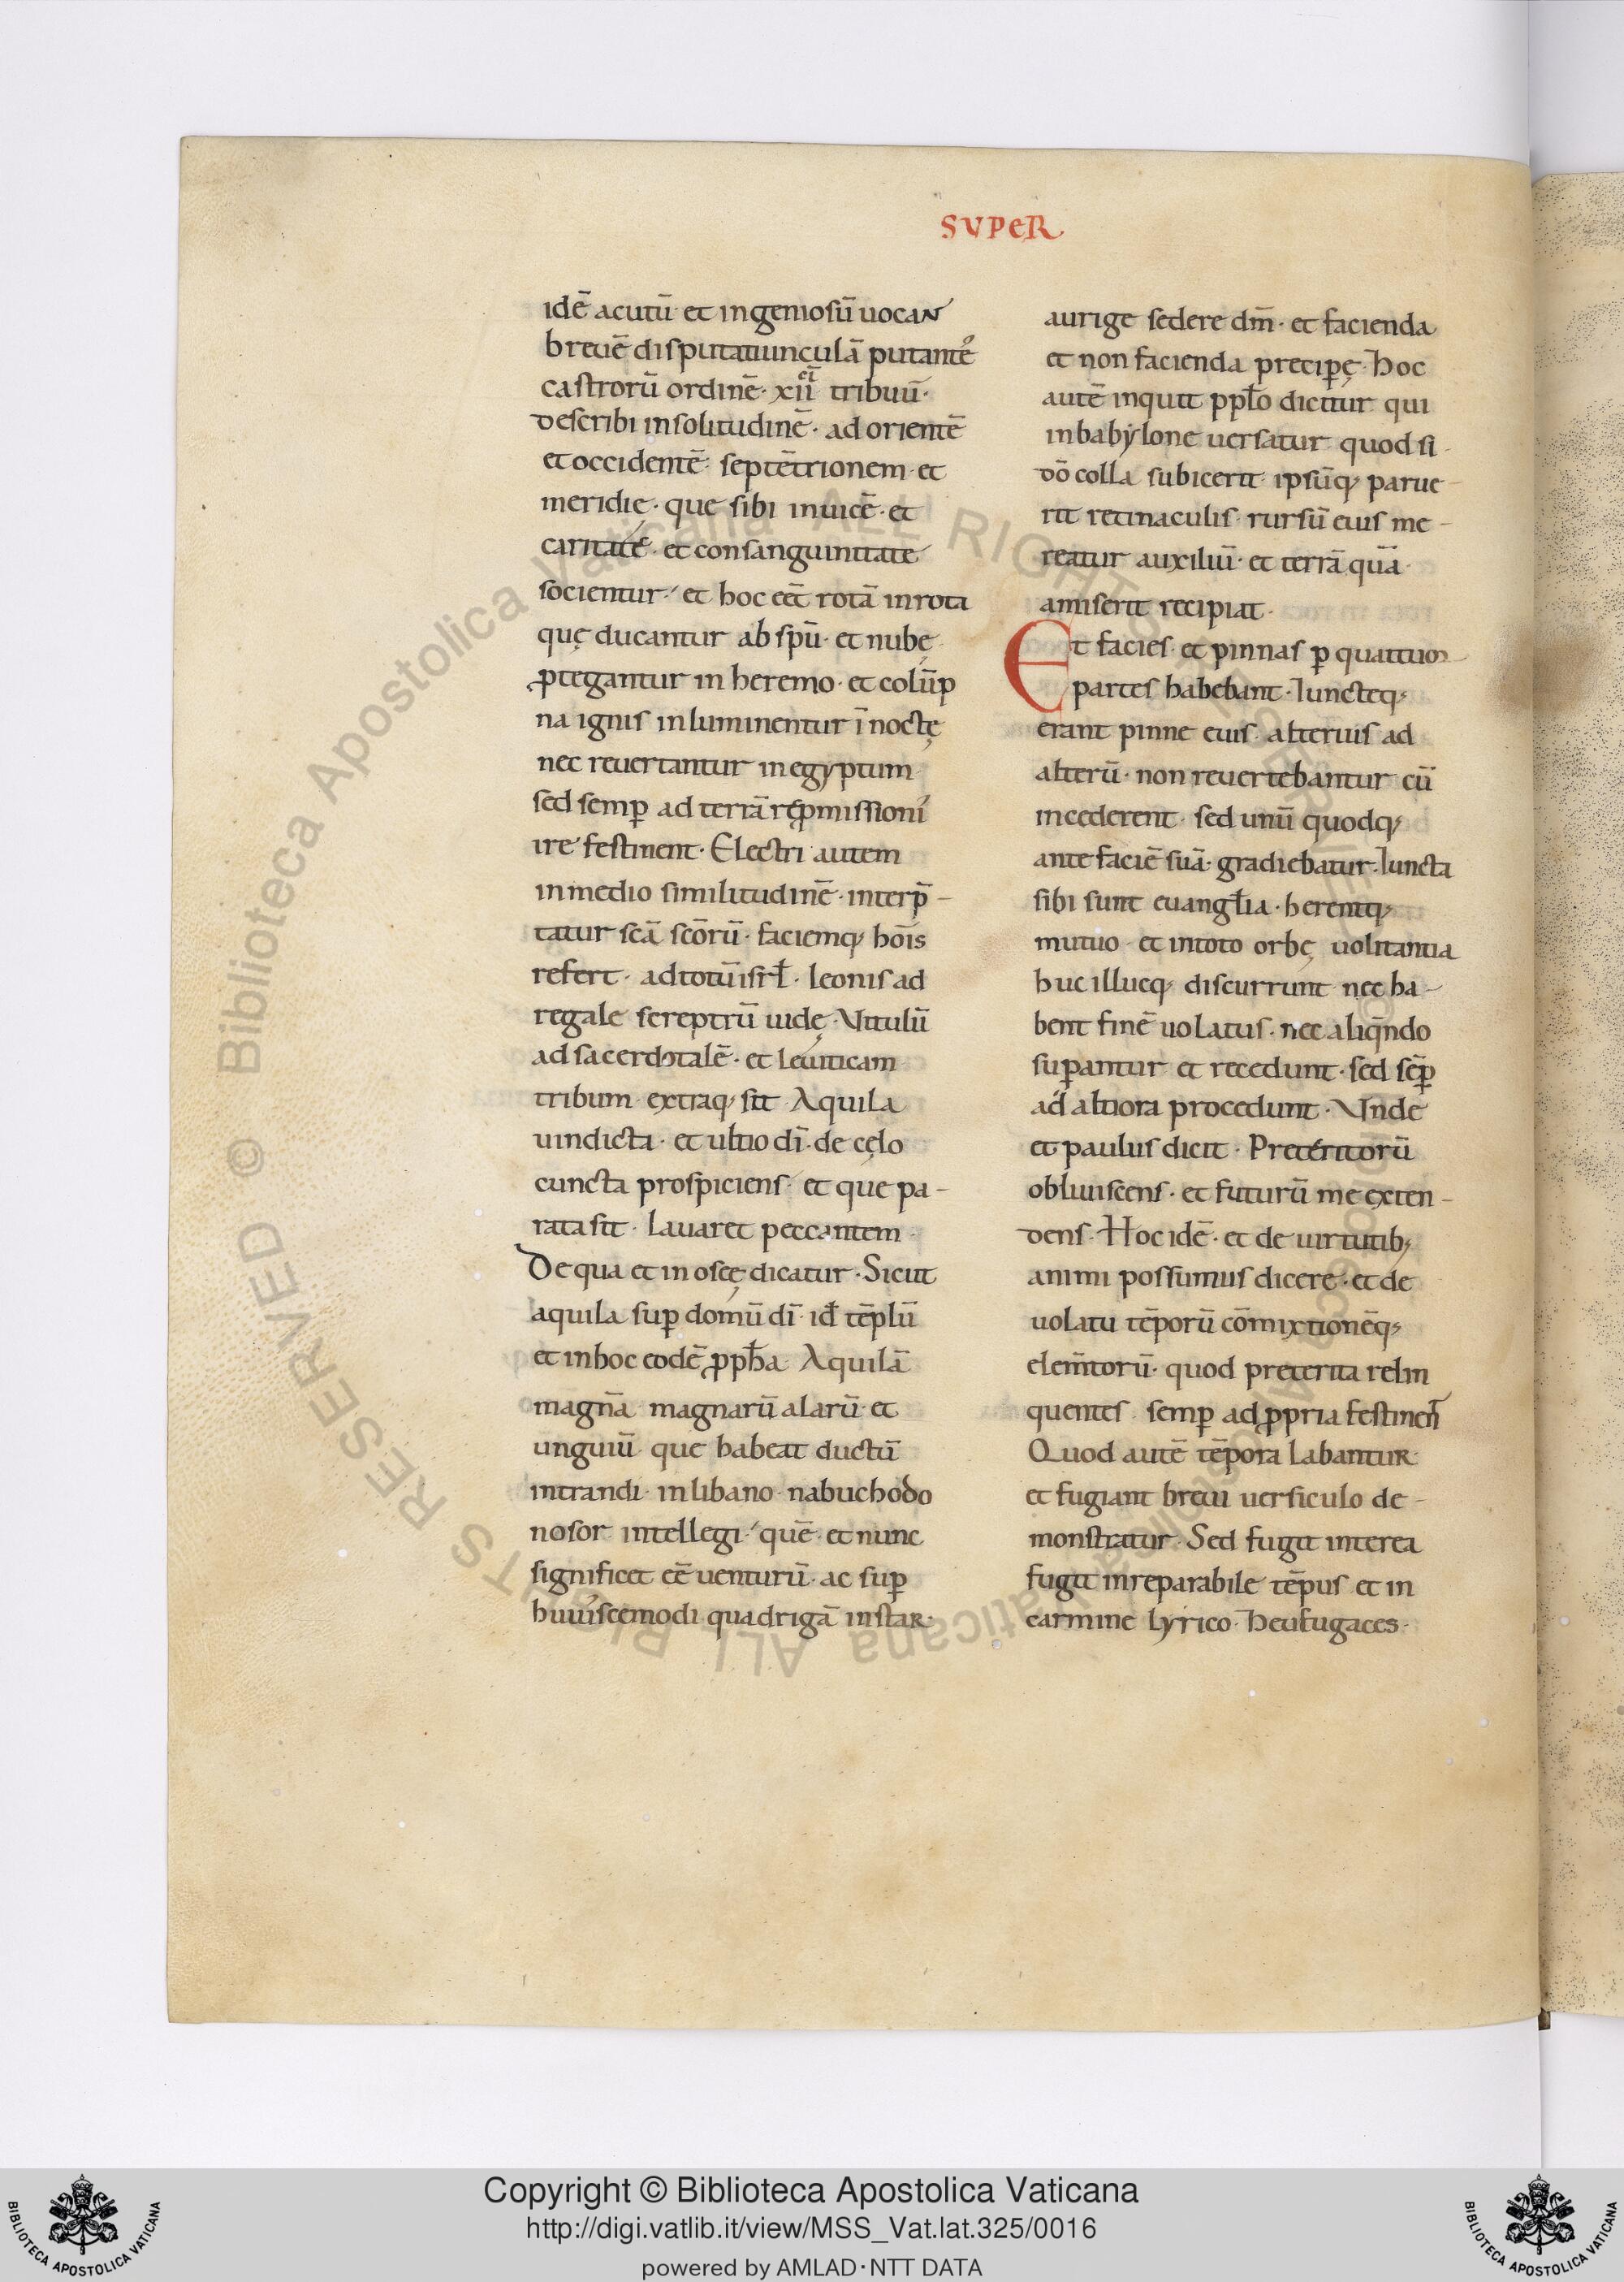 SVPER
idē acutū et ingeniosū uocaɴ
breuē disputatiunculā putantē
castrorū ordinē · xii tribuū ·
describi insolitudinē · ad orientē
et occidentē · septētrionem · et
meridię · que sibi inuicē · et
caritate · et consanguinitate
socientur · et hoc eēt rotā inrota
quę ducantur ab spū · et nubę
ꝓtegantur in heremo · et colūp
na ignis inluminentur ī noctę
nec reuertantur in egyptum
sed semꝑ ad terrā reꝓmissioni
ire festinent · Electri autem
in medio similitudinē · interp̄ -
tatur scā scōrū · faciemq; hoīs
refert · ad totū isrł · leonis ad
regale screptrū iudę · Vitulū
ad sacerdotalē · et leuiticam
tribum extraq; sit Aquila
uindicta · et ultio dī · de cęlo
cuncta prospiciens · et que pa -
rata sit · lauaret peccantem ·
De qua et in osęę dicatur · Sicut
aquila suꝑ domū dī · id tēplū
et in hoc eodē ꝓpħa Aquilā
magnā magnarū alarū · et
unguiū que habeat ductū
intrandi · in libano · nabuchodo
nosor intellegi · quē · et nunc
significet eē uenturū · ac suꝑ
huuiscemodi quadrigā instar ·
aurige sedere dm̄ · et facienda
et non facienda precipę · hoc
autē inquit ppło dicitur qui
in babylone uersatur quod si
dō colla subicerit ipsūq; parue -
rit retinaculis · rursū eius me -
reatur auxiliū · et terrā quā
amiserit recipiat ·
Et facies · et pinnas ꝑ quattuor
partes habebant · Iuncteq;
erant pinne eius alterius ad
alterū · non reuertebantur cū
incederent · sed unū quodq;
ante faciē suā · gradiebatur · Iuncta
sibi sunt euangłia · herentq;
mutuo et intoto orbę uolitantia
huc illucq; discurrunt nec ha -
bent finē uolatus · nec aliqn̄do
suꝑantur et recedunt · sed sēꝑ
ad altiora procedunt · Vnde
et paulus dicit · Preteritorū
obliuiscens · et futurū me exten -
dens · Hoc idē · et de uirtutib;
animi possumus dicere · et de
uolatu tēporū cōmixtionēq;
elem̄torū · quod preterita relin
quentes semꝑ ad ꝓpria festinen̄
Quod autē tēpora labantur
et fugiant breui uersiculo de -
monstratur · Sed fugit interea
fugit inreparabile tēpus et in
carmine lyrico · heu fugaces ·
Copyright © Biblioteca Apostolica Vaticana
http://digi.vatlib.it/view/MSS_Vat.lat.325/0016
powered by AMLAD · NTT DATA